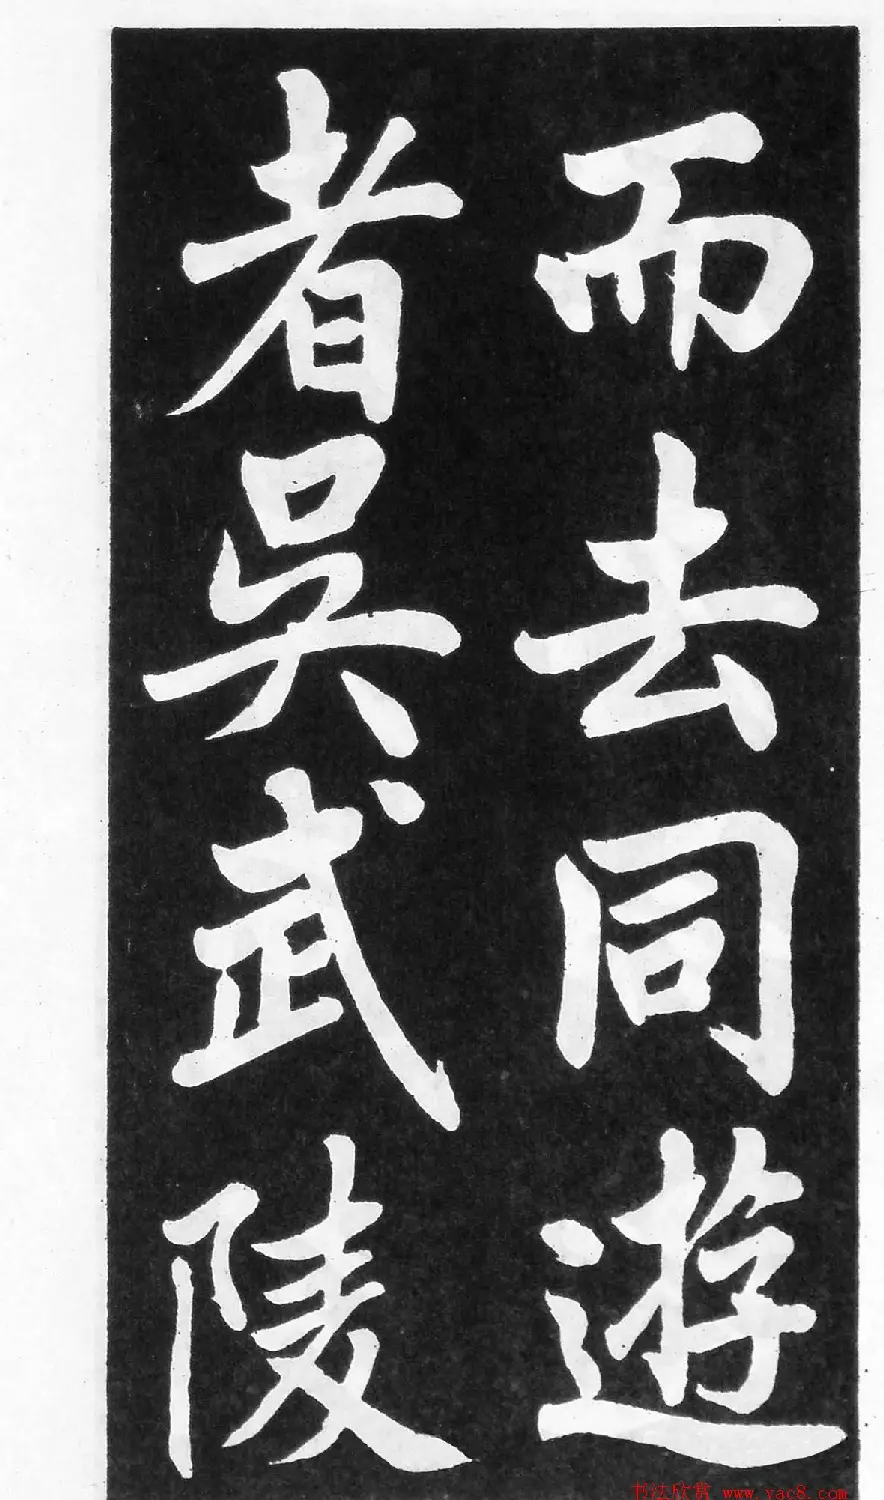 而去同遊
者吳武陵
书法欣赏 www.yac8.com